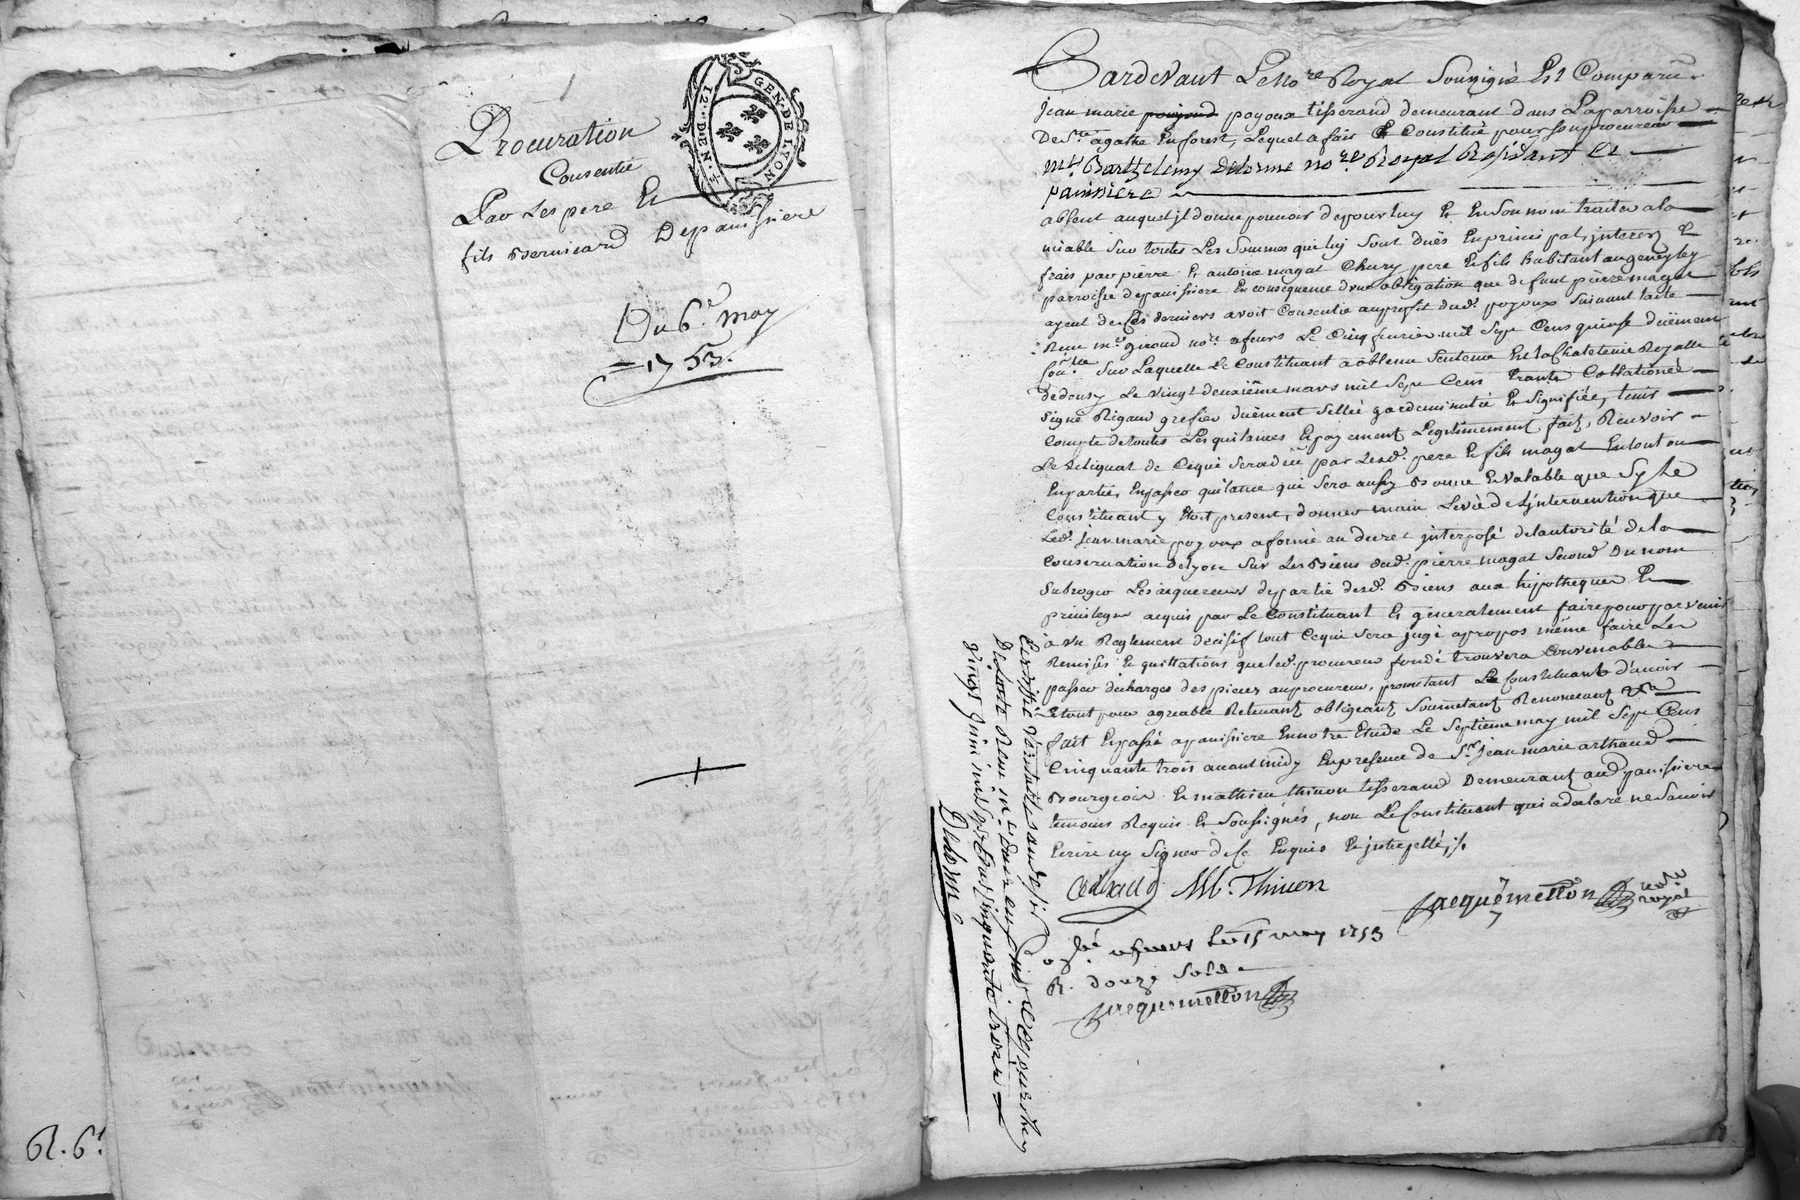 Procuration
Consentie
Par Les pere Et
fils Bernicard Depanissiere
Du 6e. may
1753.
GEN. DE LYON
12. DEN. 4
R. 6s
Pardevant Le Nore Royal Soussigné Est Comparu
jean marie poyoux tisserand demeurant dans Laparroisse
De Ste. agathe En forest, Lequel a fait Et Constitué pour son procureur
Mte. Barthelemy Delorme nore Royal Residant a
panissiere
absent auquel jl donne pouvoir de pour luy Et En son nom traiter ala
miable Sur toutes Les Sommes qui luy Sont duës En principal, jnterez Et
frais par pierre Et antoine magat Chury pere Et fils habitant au geneytey
parroisse depanissiere En consequence d'une obligation que defunt pierre magat
ayeul de Ces derniers avoit Consentie au profit dud. poyoux Suivant lacte
Reçu me. giroud nore. a feurs Le Cinq fevrier mil Sept Cens quinse duëment
Sur Laquelle Le Constituant a obtenu Sentence En la Chatelenie Royalle
dedonsy Le vingt deuxiême mars mil Sept Cens trante Collationné
Signé Rigaud grefier duëment Sellée gardeminutée Et Signifiée, tenir
Compte detoutes Les quitances Et payement Legitimement fait, Recevoir
Le Reliquat de Cequi Sera deû par Lesd. pere Et fils magat Entout ou
En partie, En passer quitance qui Sera aussy Bonne Et Valable que Sy Le
Constituant y Etoit present, donner main Levée de Ljntervention que
Led. jean marie poyoux a formé au decret jnterposé delautorité de la
Conservation de lyon Sur Les Biens dud. pierre magat Second Du nom
Subroger Les aquereurs departie desd. Biens aux hypotheques Et
privileges acquis par Le Constituant Et generalement faire pour parvenir
à un Reglement decisif tout Cequi Sera jugé apropos même faire Les
Remises Et quittations que led. procureur fondé trouvera Convenable
passer decharges des pieces au procureur, promettant Le Constituant d'avoir
Letout pour agreable Relevant obligeant Soumetant Renonceant &a
fait Et passé a panissiere En notre Etude Le Septieme may mil Sept Cens
Cinquante trois avant midy En presence de Sr. jean marie arthaud
Bourgeois Et mathieu thinon tisserand Demeurant aud. panissiere
temoins Requis Et Soussignés, non Le Constituant qui a declaré ne Savoir
Ecrire ny Signer de Ce Enquis Et jnterpellé,
Arthaud M. Thinon
Jacquemetton nore royal
Clé. a feurs Le 15 may 1753
R. douze Sols
Jacquemetton
vingt juin mil Sept Cens Cinquante trois
Delorme